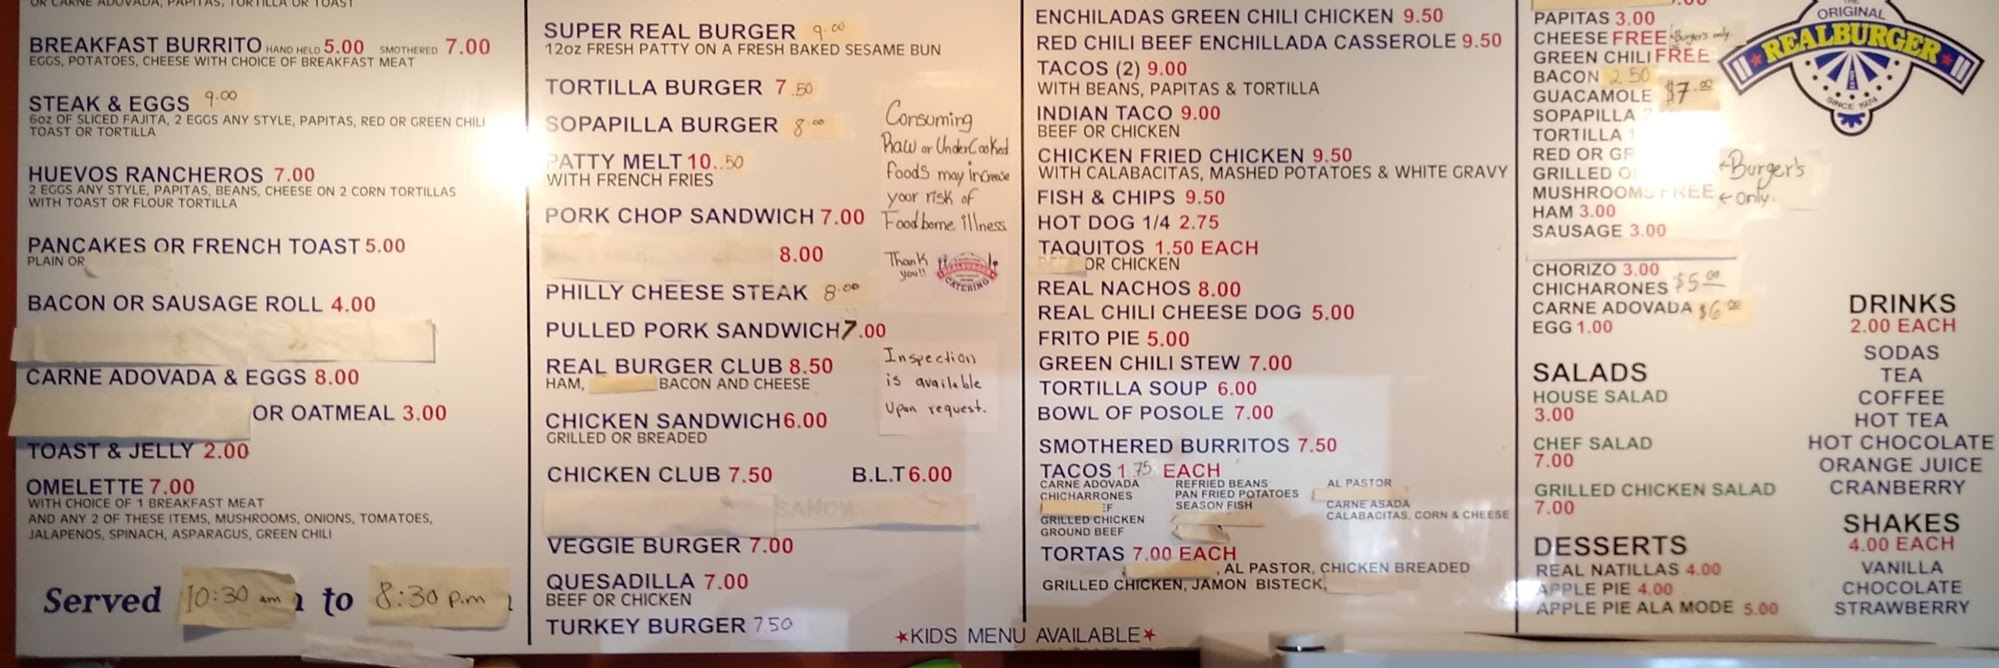 OR CARNE ADOVADA, PAPITAS, TORTILLA OR TOAST
BREAKFAST BURRITO HAND HELD 5.00 SMOTHERED 7.00
EGGS, POTATOES, CHEESE WITH CHOICE OF BREAKFAST MEAT
STEAK & EGGS 9.00
6oz OF SLICED FAJITA, 2 EGGS ANY STYLE, PAPITAS, RED OR GREEN CHILI
TOAST OR TORTILLA
HUEVOS RANCHEROS 7.00
2 EGGS ANY STYLE, PAPITAS, BEANS, CHEESE ON 2 CORN TORTILLAS
WITH TOAST OR FLOUR TORTILLA
PANCAKES OR FRENCH TOAST 5.00
PLAIN OR
BACON OR SAUSAGE ROLL 4.00
CARNE ADOVADA & EGGS 8.00
OR OATMEAL 3.00
TOAST & JELLY 2.00
OMELETTE 7.00
WITH CHOICE OF 1 BREAKFAST MEAT
AND ANY 2 OF THESE ITEMS, MUSHROOMS, ONIONS, TOMATOES,
JALAPENOS, SPINACH, ASPARAGUS, GREEN CHILI
Served 10:30 am to 8:30 p.m
SUPER REAL BURGER 9.00
12oz FRESH PATTY ON A FRESH BAKED SESAME BUN
TORTILLA BURGER 7.50
SOPAPILLA BURGER 8.00
PATTY MELT 10..50
WITH FRENCH FRIES
PORK CHOP SANDWICH 7.00
8.00
PHILLY CHEESE STEAK 8.00
PULLED PORK SANDWICH 7.00
REAL BURGER CLUB 8.50
HAM, BACON AND CHEESE
CHICKEN SANDWICH 6.00
GRILLED OR BREADED
CHICKEN CLUB 7.50 B.L.T 6.00
VEGGIE BURGER 7.00
QUESADILLA 7.00
BEEF OR CHICKEN
TURKEY BURGER 7.50
Consuming
Raw or UnderCooked
foods may increase
your risk of
Foodborne illness.
Thank
you!!
REALBURGER
CATERING
Inspection
is available
Upon request.
★KIDS MENU AVAILABLE★
ENCHILADAS GREEN CHILI CHICKEN 9.50
RED CHILI BEEF ENCHILLADA CASSEROLE 9.50
TACOS (2) 9.00
WITH BEANS, PAPITAS & TORTILLA
INDIAN TACO 9.00
BEEF OR CHICKEN
CHICKEN FRIED CHICKEN 9.50
WITH CALABACITAS, MASHED POTATOES & WHITE GRAVY
FISH & CHIPS 9.50
HOT DOG 1/4 2.75
TAQUITOS 1.50 EACH
OR CHICKEN
REAL NACHOS 8.00
REAL CHILI CHEESE DOG 5.00
FRITO PIE 5.00
GREEN CHILI STEW 7.00
TORTILLA SOUP 6.00
BOWL OF POSOLE 7.00
SMOTHERED BURRITOS 7.50
TACOS 1.75 EACH
CARNE ADOVADA
CHICHARRONES
GRILLED CHICKEN
GROUND BEEF
REFRIED BEANS
PAN FRIED POTATOES
SEASON FISH
AL PASTOR
CARNE ASADA
CALABACITAS, CORN & CHEESE
TORTAS 7.00 EACH
, AL PASTOR, CHICKEN BREADED
GRILLED CHICKEN, JAMON BISTECK,
PAPITAS 3.00
CHEESE FREE Burger's only.
GREEN CHILI FREE
BACON 2.50
GUACAMOLE $7.00
SOPAPILLA
TORTILLA
RED OR
GRILLED
MUSHROOMS FREE
←Burger's
←only.
HAM 3.00
SAUSAGE 3.00
CHORIZO 3.00
CHICHARONES $5.00
CARNE ADOVADA $6.00
EGG 1.00
SALADS
HOUSE SALAD
3.00
CHEF SALAD
7.00
GRILLED CHICKEN SALAD
7.00
DESSERTS
REAL NATILLAS 4.00
APPLE PIE 4.00
APPLE PIE ALA MODE 5.00
THE
ORIGINAL
REALBURGER
SINCE 1974
DRINKS
2.00 EACH
SODAS
TEA
COFFEE
HOT TEA
HOT CHOCOLATE
ORANGE JUICE
CRANBERRY
SHAKES
4.00 EACH
VANILLA
CHOCOLATE
STRAWBERRY